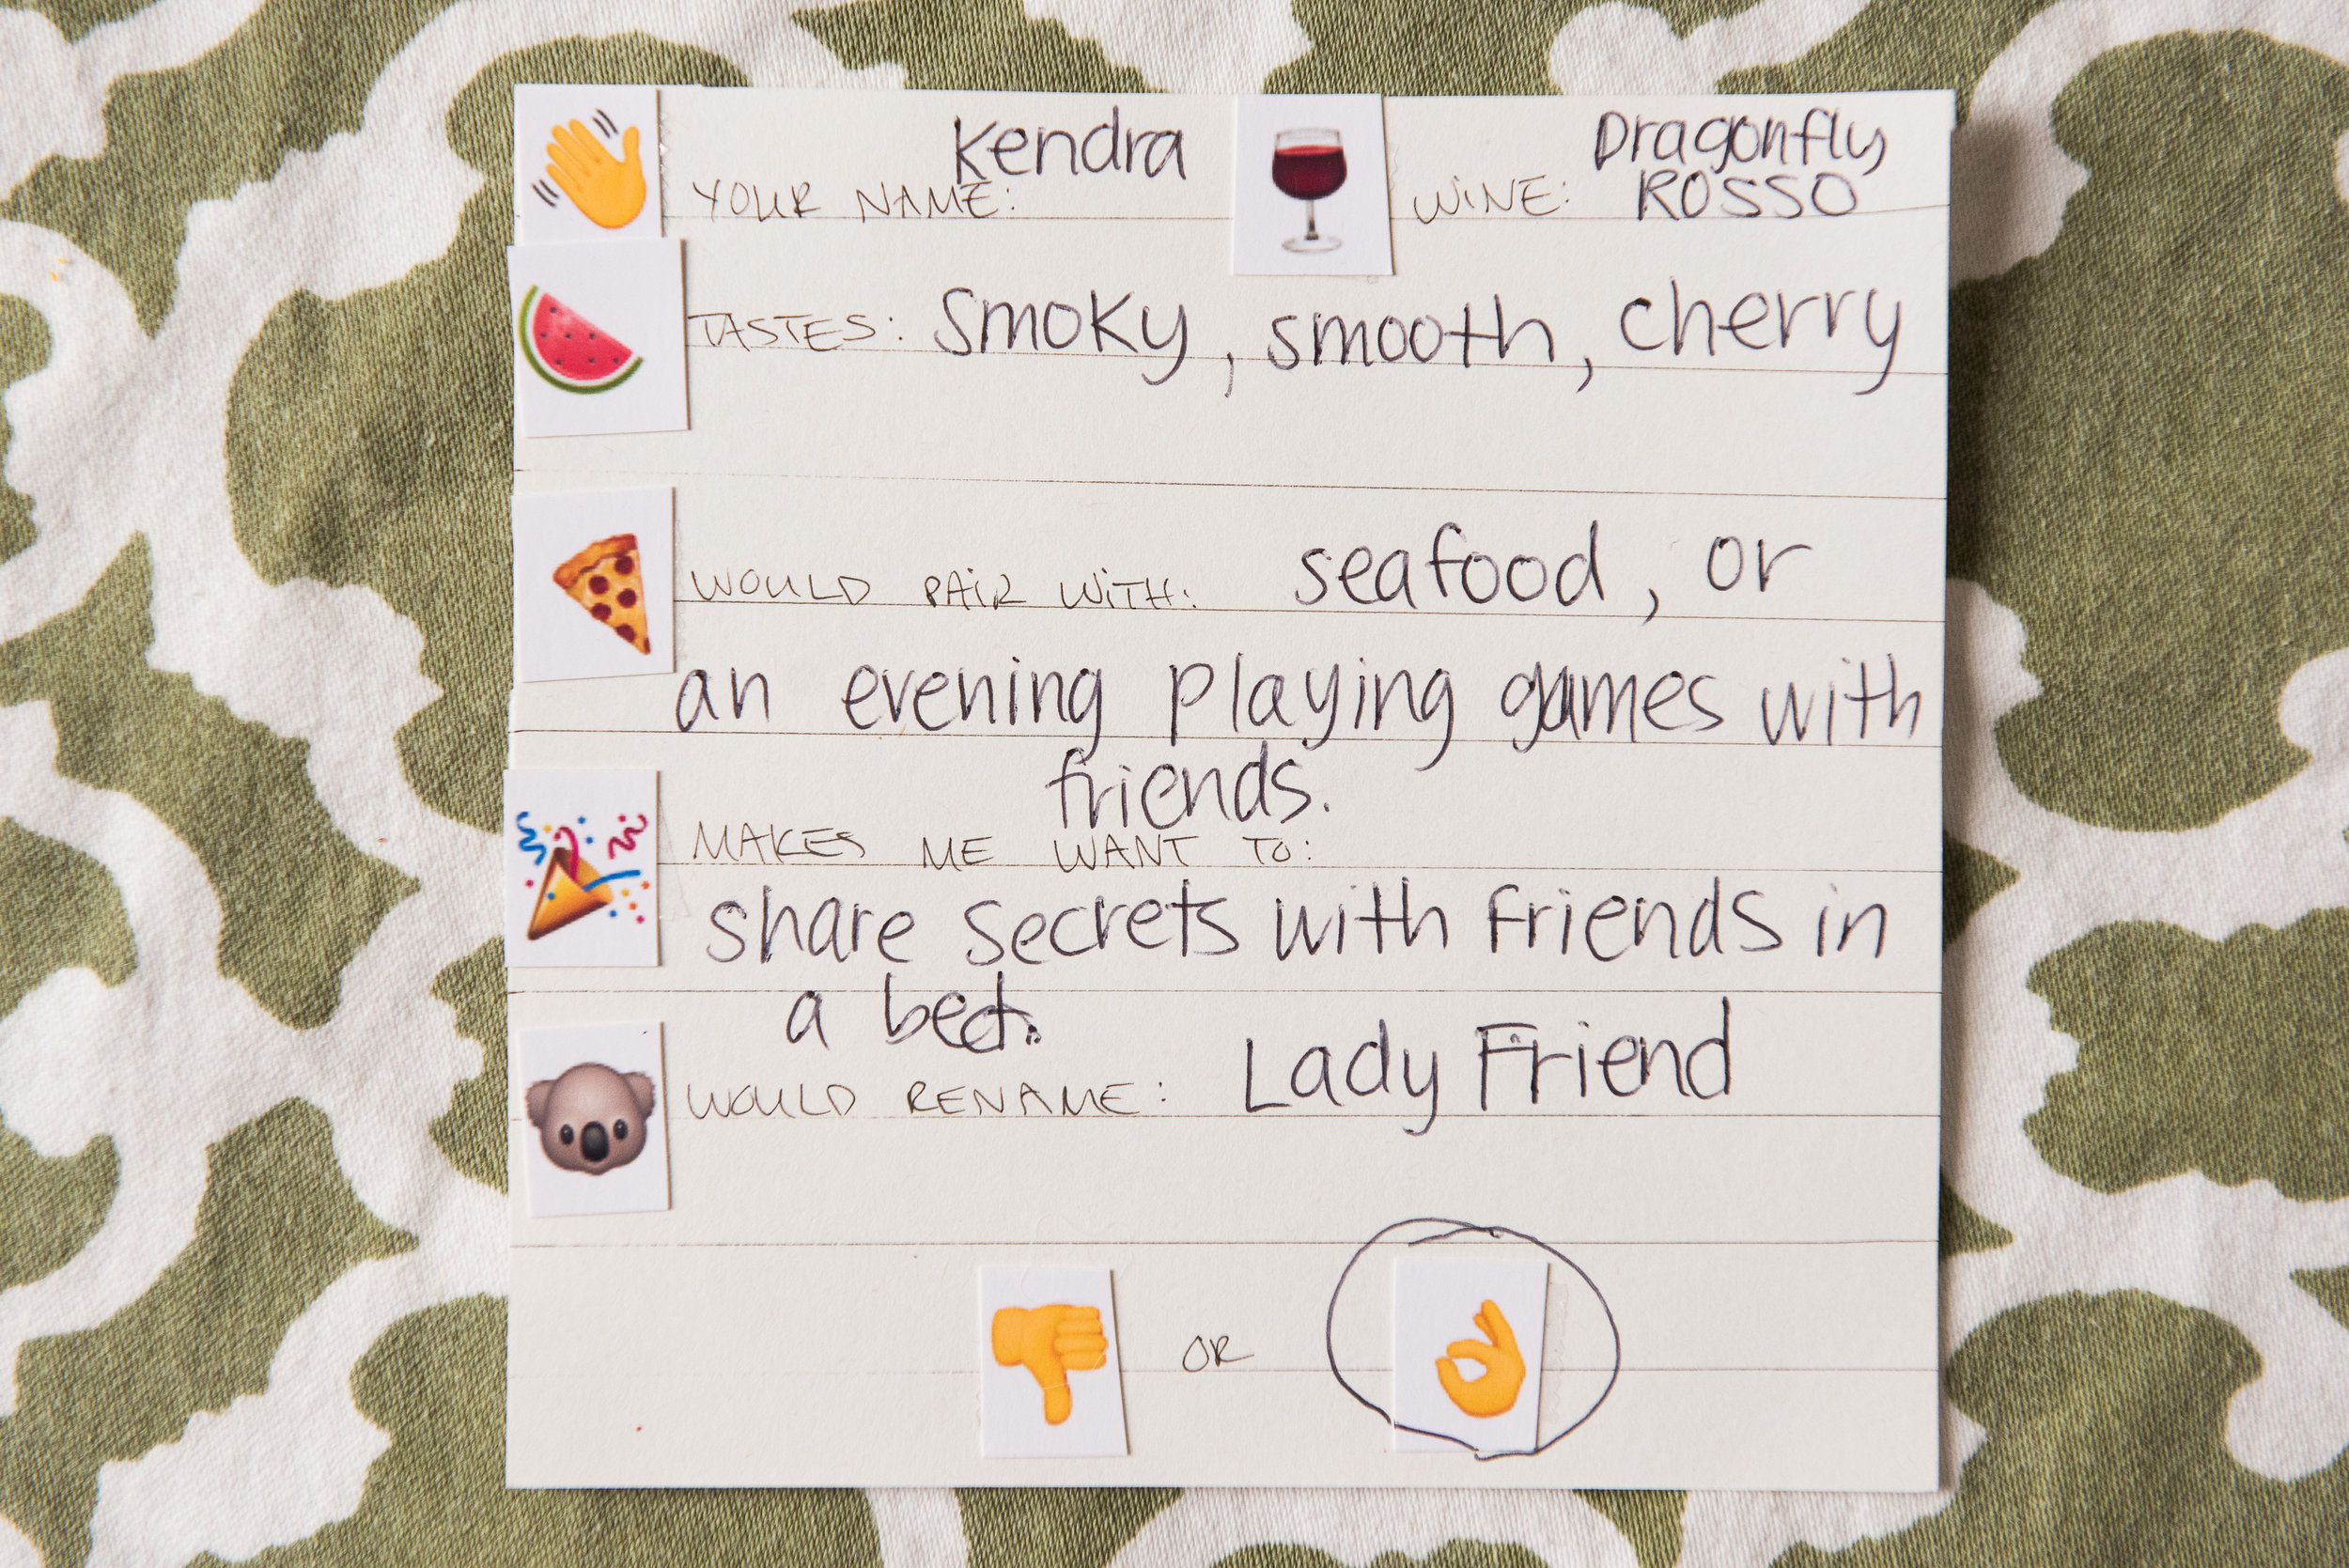 YOUR NAME: Kendra WINE: Dragonfly
ROSSO
TASTES: Smoky, smooth, cherry
WOULD PAIR WITH: seafood, or
an evening playing games with
friends.
MAKES ME WANT TO:
share secrets with friends in
a bed.
WOULD RENAME: Lady Friend
OR